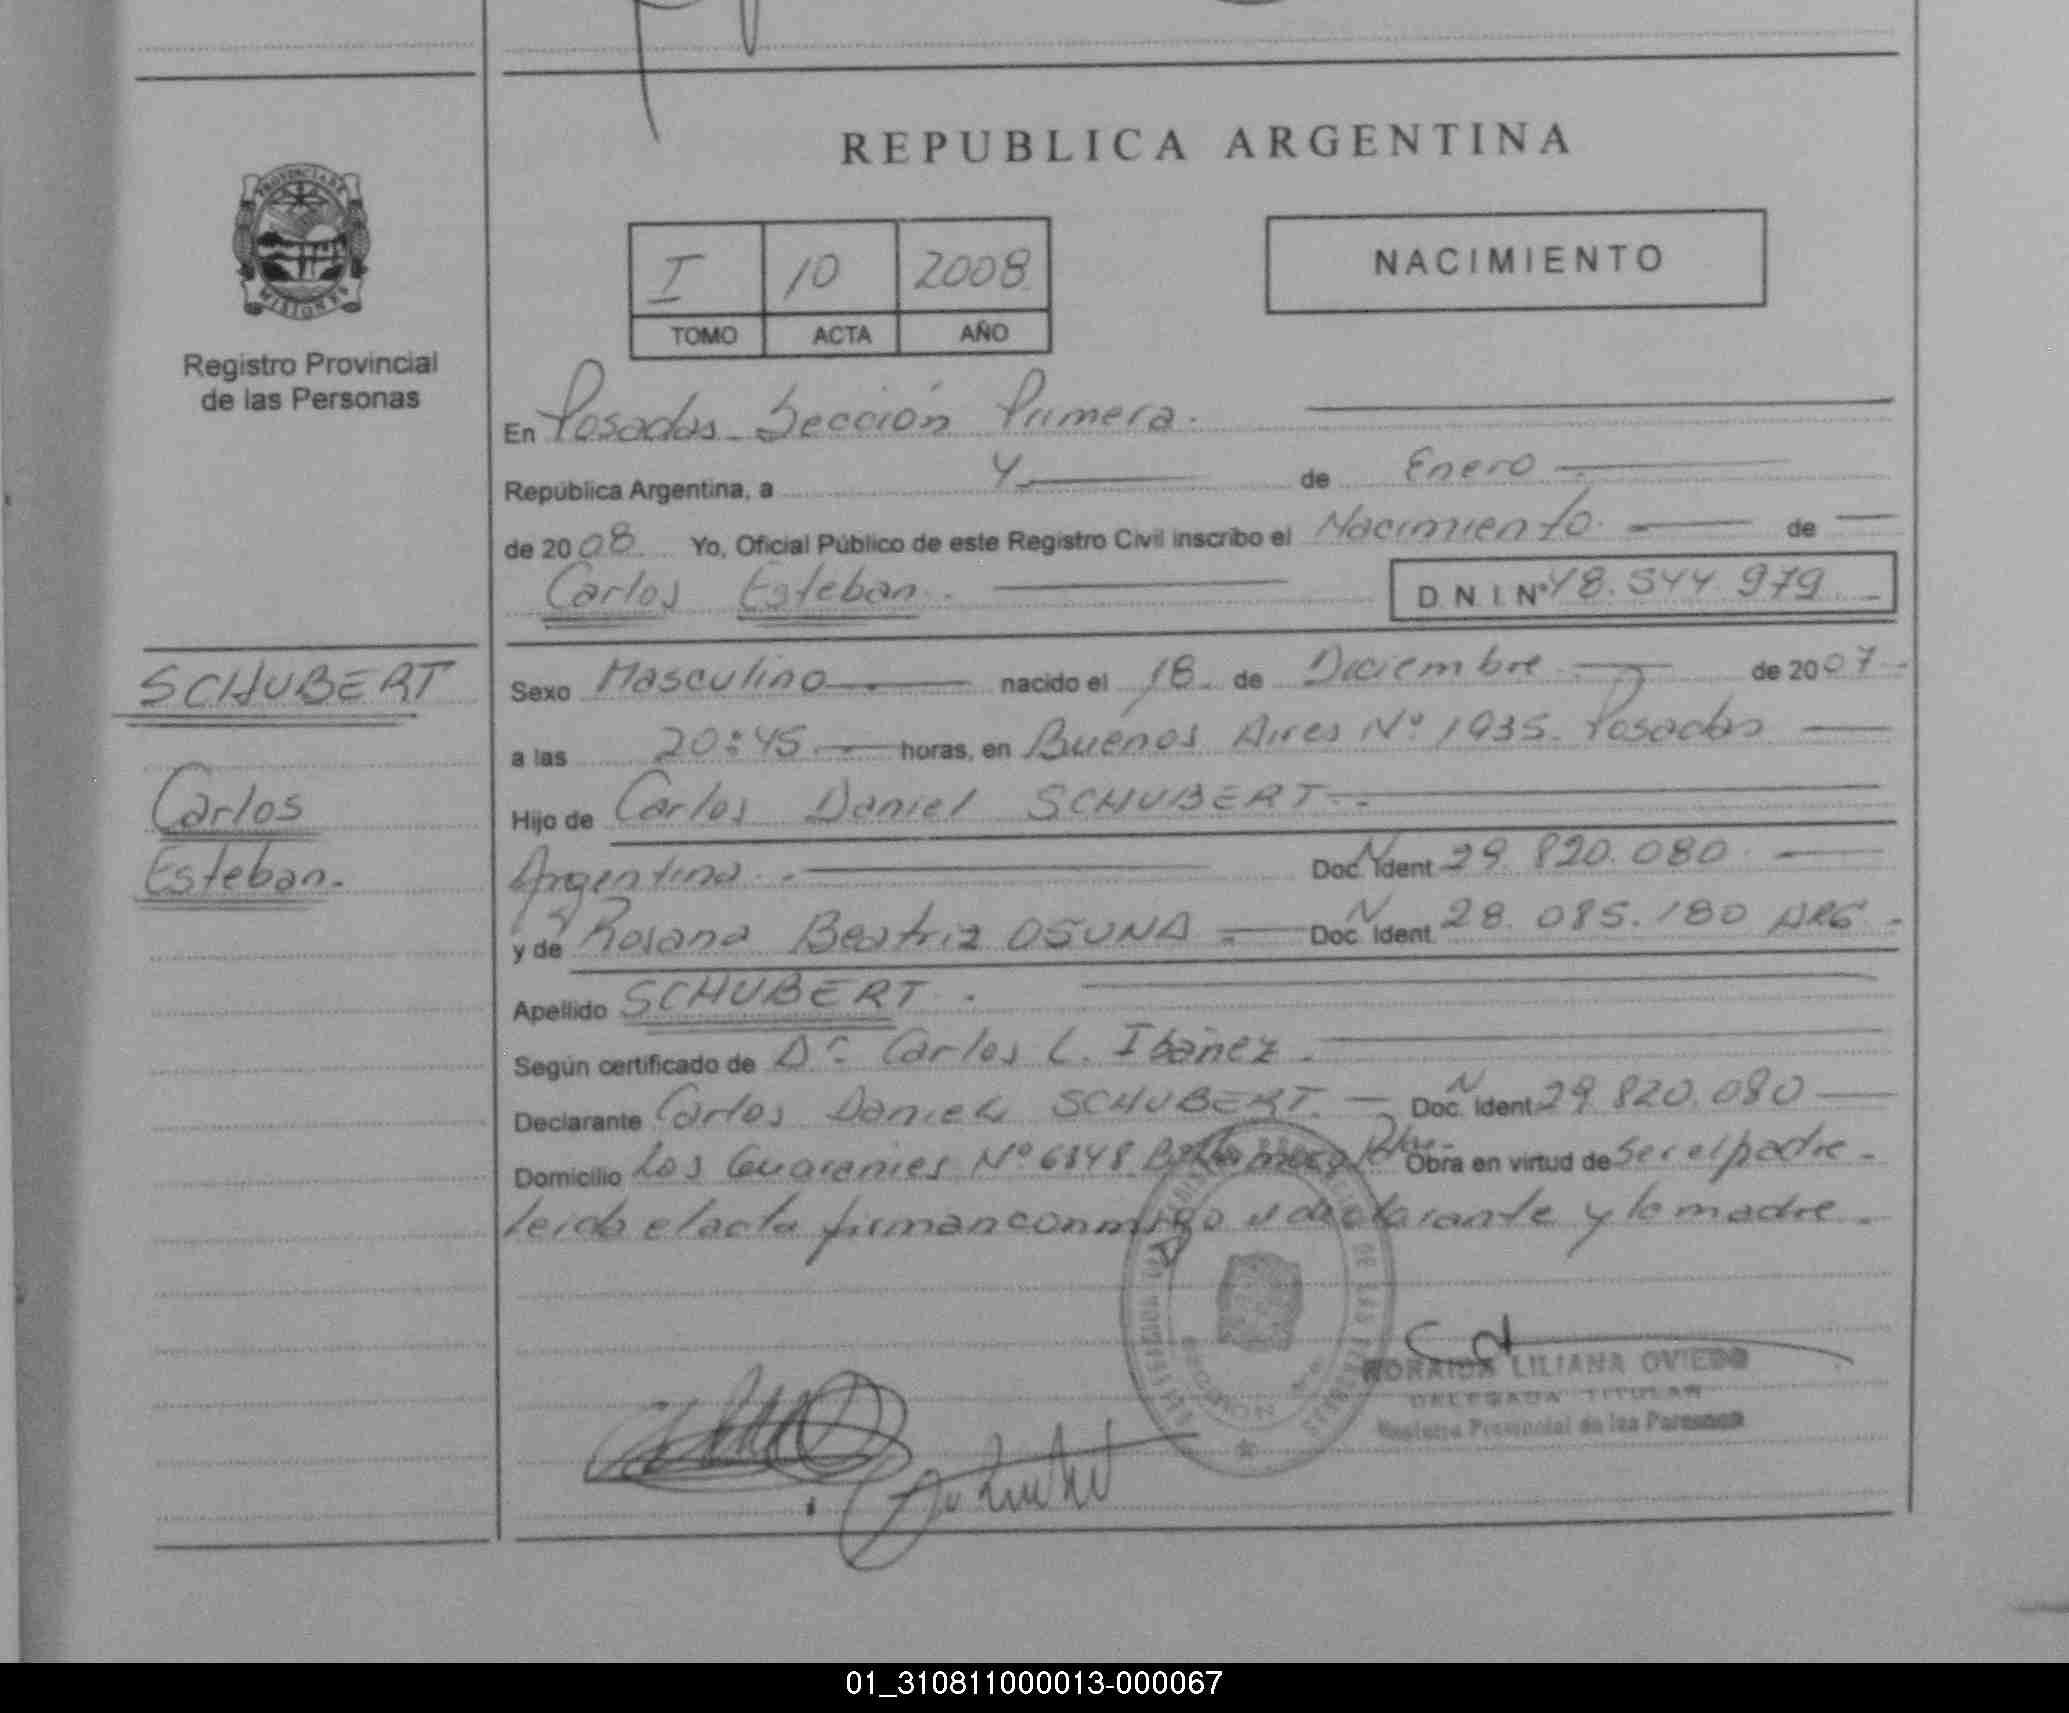 REPUBLICA ARGENTINA
PROVINCIA DE
MISIONES
Registro Provincial
de las Personas
I 10 2008
TOMO ACTA AÑO
NACIMIENTO
En Posadas Sección Primera.
República Argentina, a 4 de Enero
de 2008 Yo, Oficial Público de este Registro Civil inscribo el Nacimiento de
Carlos Esteban. D N I Nº 48.544.979
SCHUBERT
Carlos
Esteban.
Sexo Masculino nacido el 18 de Diciembre de 2007
a las 20:45 horas, en Buenos Aires Nº 1935. Posadas
Hijo de Carlos Daniel SCHUBERT
Argentina. Doc. N Ident 29.820.080
y de Rosana Beatriz OSUNA Doc. N Ident. 28.085.180 ARG.
Apellido SCHUBERT.
Según certificado de Dr. Carlos L. Ibañez.
Declarante Carlos Daniel SCHUBERT. Doc. N Ident 29.820.080
Domicilio Los Guaranies Nº 6848 Obra en virtud de ser el padre.
leida el acta firman conmigo el declarante y la madre.
LILIANA OVIEDO
DELEGADA TITULAR
Registro Provincial de las Personas
01_310811000013-000067